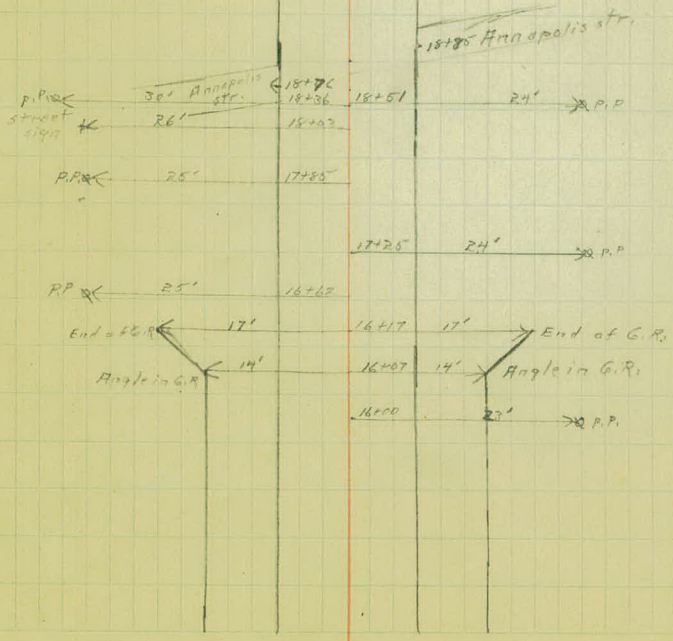 18+85 Annapolis str.
30' Annapolis str. 18+76
P.P. 18+36 18+51 24' P.P
street sign 26' 18+03
P.P. 25' 17+85
17+25 24' P.P
P.P 25' 16+62
End of G.R 17' 16+17 17' End of G.R.
Angle in G.R 14' 16+07 14' Angle in G.R.
16+00 23' P.P.